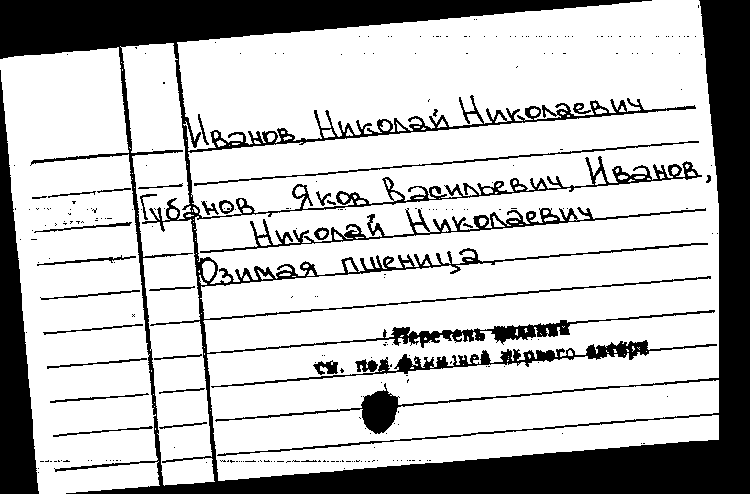 Иванов, Николай Николаевич
Губанов, Яков Васильевич, Иванов,
Николай Николаевич
Озимая пшеница.
Перечень изданий
см. под фамилией первого автора